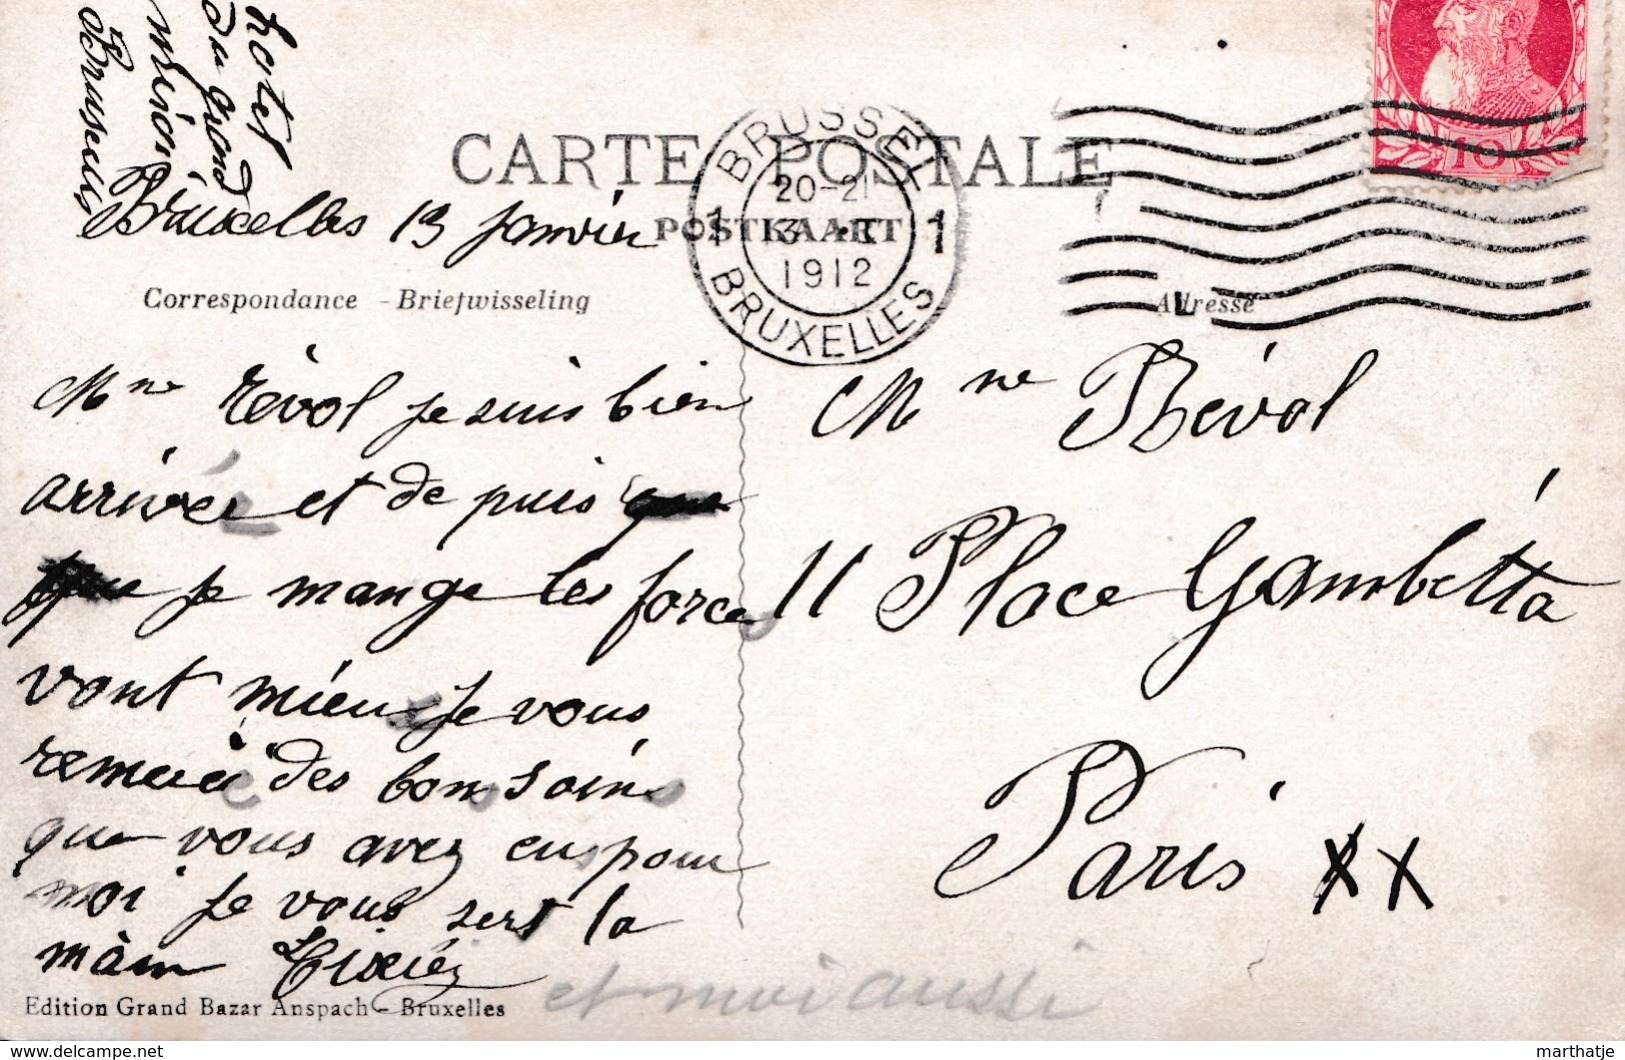 hotel
du Grand
miroir
Bruxelles
CARTE POSTALE
POSTKAART
BRUSSEL
20-21
3 I
1912
1 1
BRUXELLES
10
Bruxelles 13 Janvier
Correspondance - Briefwisseling
Adresse
Mme Révol je suis bien
arrivée et de puis que
que je mange les force
vont mieu je vous
remercie des bons soins
que vous avez eus pour
moi je vous sert la
main Tixier
et moi aussi
Mme Révol
11 Place Gambetta
Paris XX
Edition Grand Bazar Anspach - Bruxelles
delcampe.net
marthatje